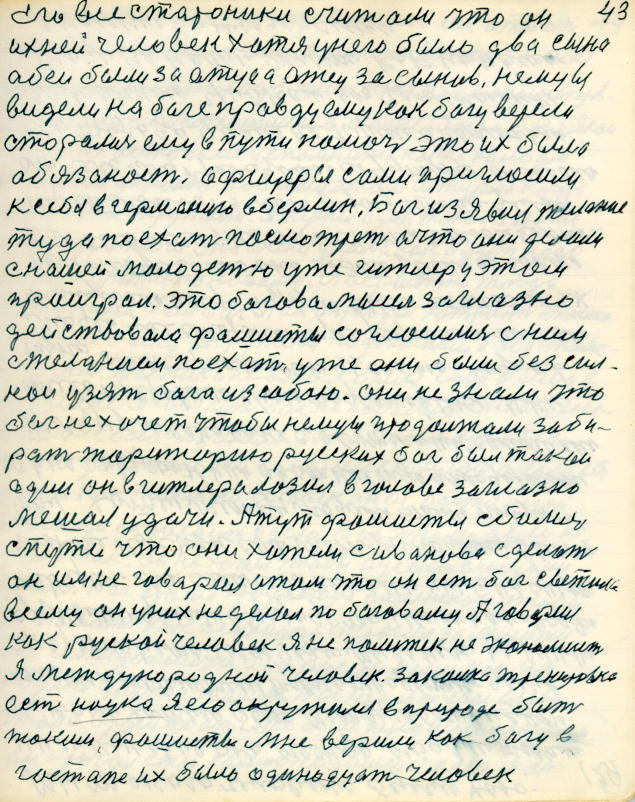 43
Его все староники считали что он
ихней человек хотя у него было два сына
абеи были за отца а отец за сынов, немцы
видели на боге правду ему как богу верели
сторолия ему в пути помоч это их было
обязаност, афицеры сами пригласили
к себя в германию в берлин, Бог изявил желание
туда поехат посмотрет а что они делали
с нашей молодетью уже гитлер у этом
проиграл. Это богова мысел заглазно
действовала фашисты согласилия с ним
с желанием поехат, уже они были без сил-
ной узят бога из собою. они не знали что
бог не хочет чтобы немцы продолжали заби-
рат тариторию русских бог был такой
один он в гитлера лозил в голове заглазно
мешал удачи. А тут фашисты сбилия
с пути что они хотели с иванова сделат
он им не говарил о том что он ест бог светила
всему он у них не делал по боговаму Я говорил
как руской человек я не политик не экономист
Я международной человек. Закалка тренировка
ест наука я его окружил в природе быт
таким, фашисты мне верили как богу в
гостапе их было одинадцат человек